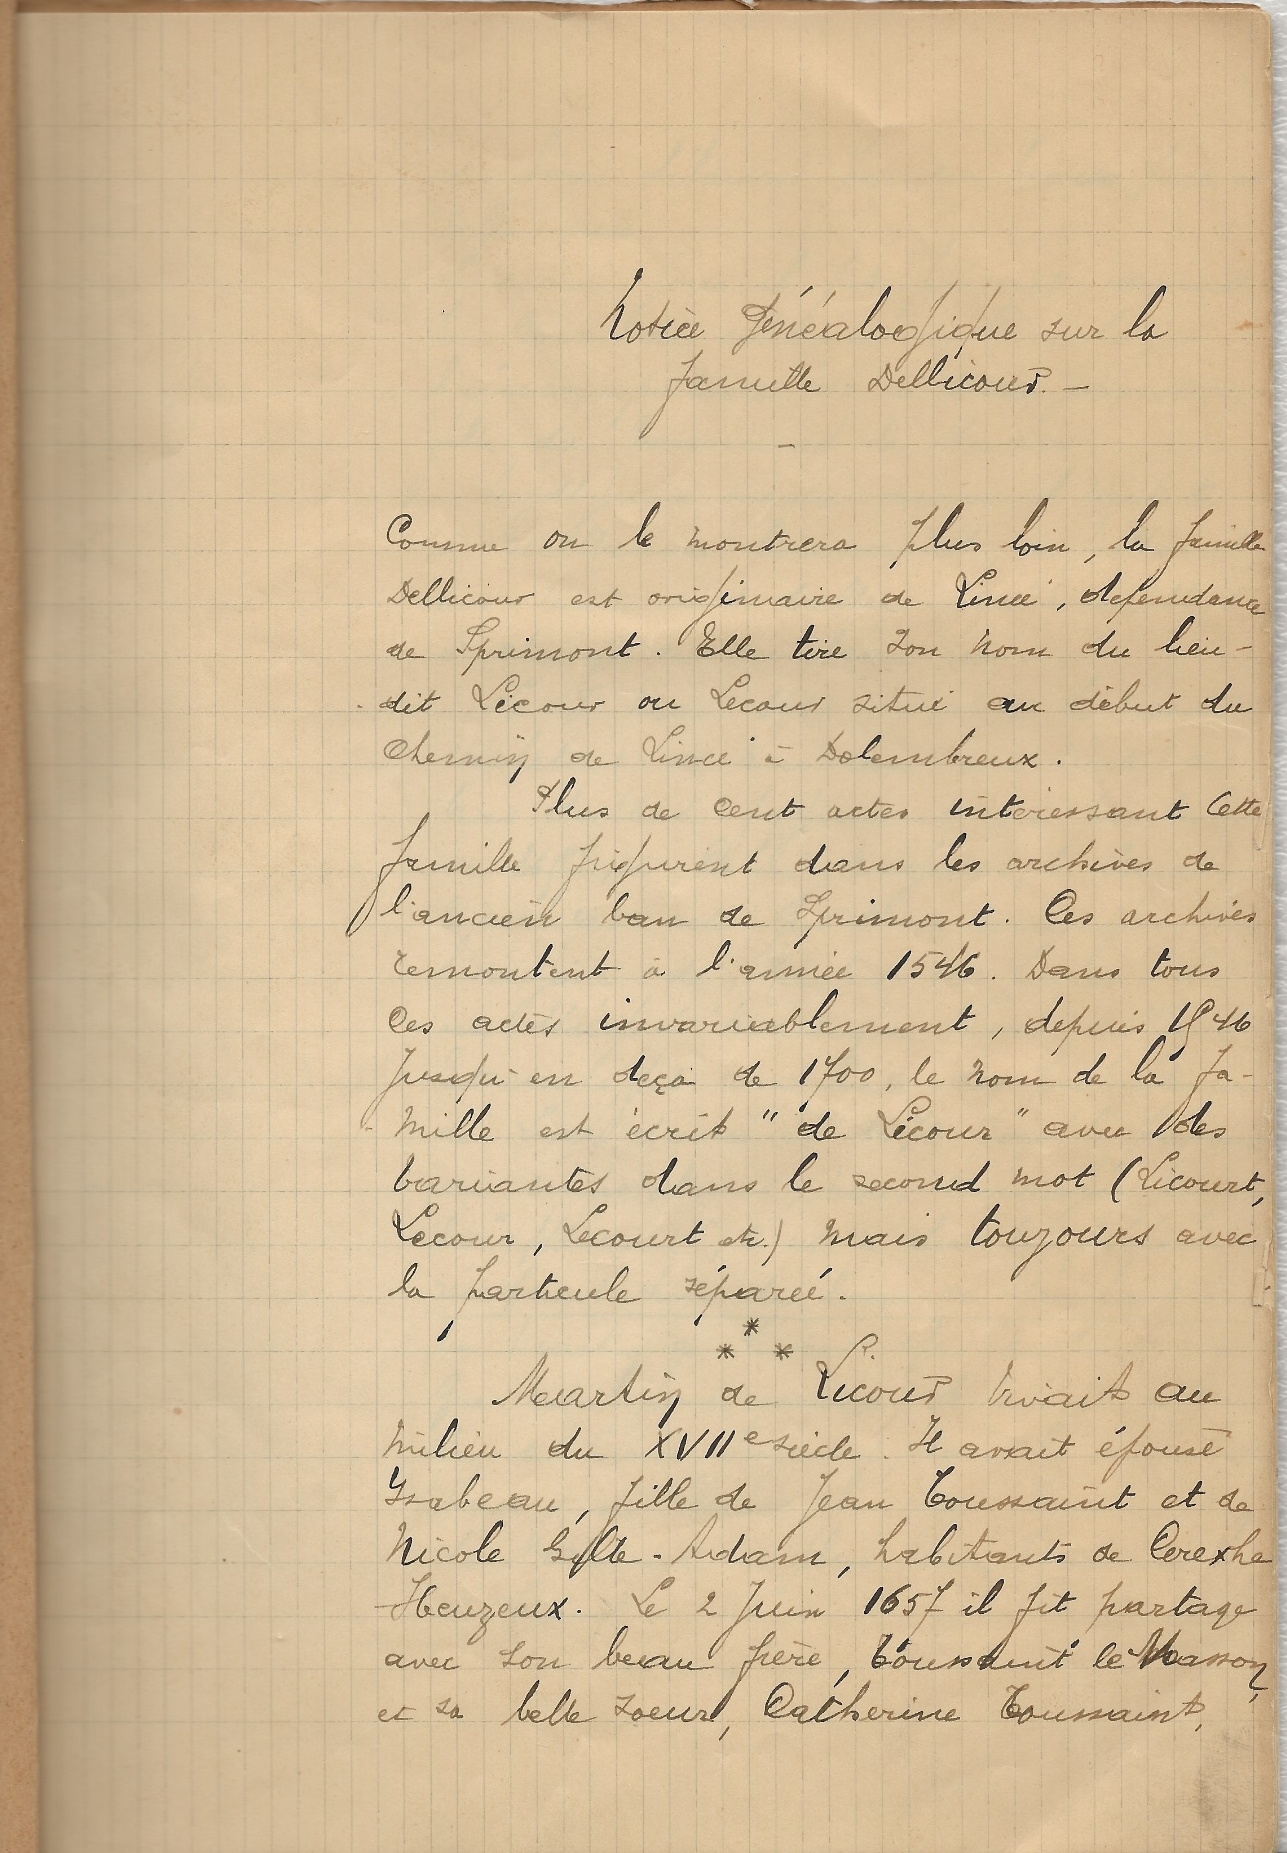 Notice généalogique sur la
famille Dellicour. –
–
Comme on le montrera plus loin, la famille
Dellicour est originaire de Lincé, dépendance
de Sprimont. Elle tire son nom du lieu-
dit Lécour ou Lecour situé au début du
Chemin de Lincé à Dolembreux.
Plus de cent actes intéressant cette
famille figurent dans les archives de
l'ancien ban de Sprimont. Ces archives
remontent à l'année 1546. Dans tous
ces actes invariablement, depuis 1546
jusqu'en deça de 1700, le nom de la fa-
mille est écrit "de Lécour" avec des
variantes dans le second mot (Licourt,
Lecour, Lecourt etc.) mais toujours avec
la particule séparée.
* * *
Martin de Licour vivait au
milieu du XVIIe siècle. Il avait épousé
Ysabeau, fille de Jean Toussaint et de
Nicole Adam, habitants de Cerexhe
-Heuzeux. Le 2 Juin 1657 il fit partage
avec son beau frère, Toussaint le Masson,
et sa belle soeur, Catherine Toussaint,